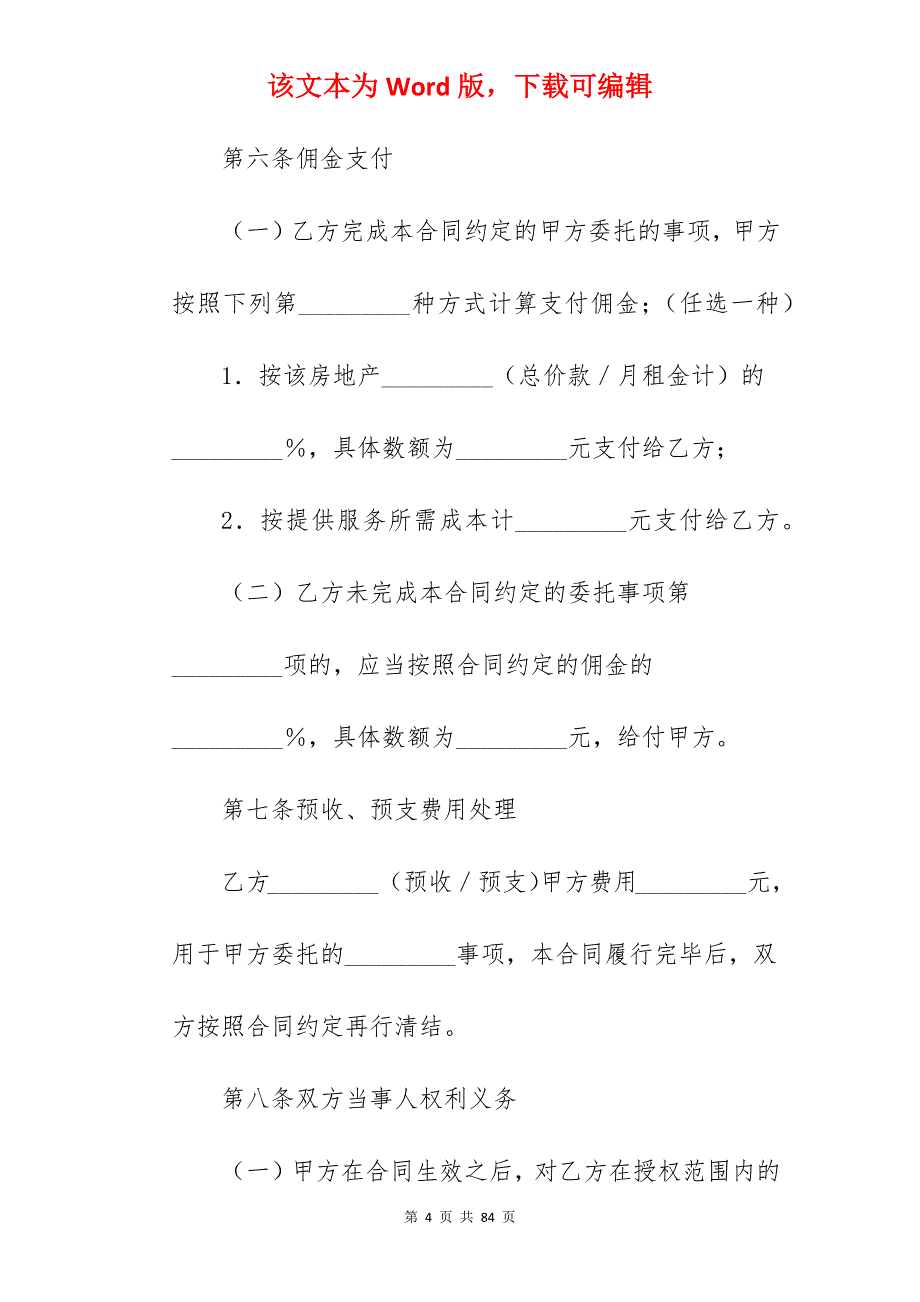 该文本为 Word 版，下载可编辑
第六条佣金支付
（一）乙方完成本合同约定的甲方委托的事项，甲方
按照下列第_________种方式计算支付佣金；（任选一种）
1．按该房地产_________（总价款／月租金计）的
_________％，具体数额为_________元支付给乙方；
2．按提供服务所需成本计_________元支付给乙方。
（二）乙方未完成本合同约定的委托事项第
_________项的，应当按照合同约定的佣金的
_________％，具体数额为_________元，给付甲方。
第七条预收、预支费用处理
乙方_________（预收／预支）甲方费用_________元，
用于甲方委托的_________事项，本合同履行完毕后，双
方按照合同约定再行清结。
第八条双方当事人权利义务
（一）甲方在合同生效之后，对乙方在授权范围内的
第 4 页 共 84 页